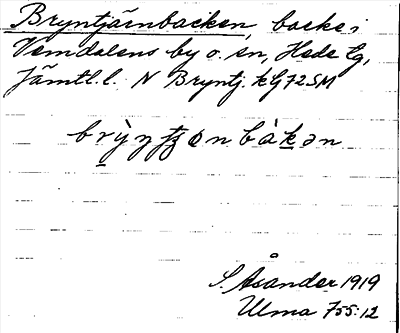 Bryntjärnbacken, backe i
Vemdalens by o. sn, Hede tg,
Jämtl. l. N Bryntj. kG72SM
brỳntʒənbàkən
S. Åsander 1919
Ulma 755:12